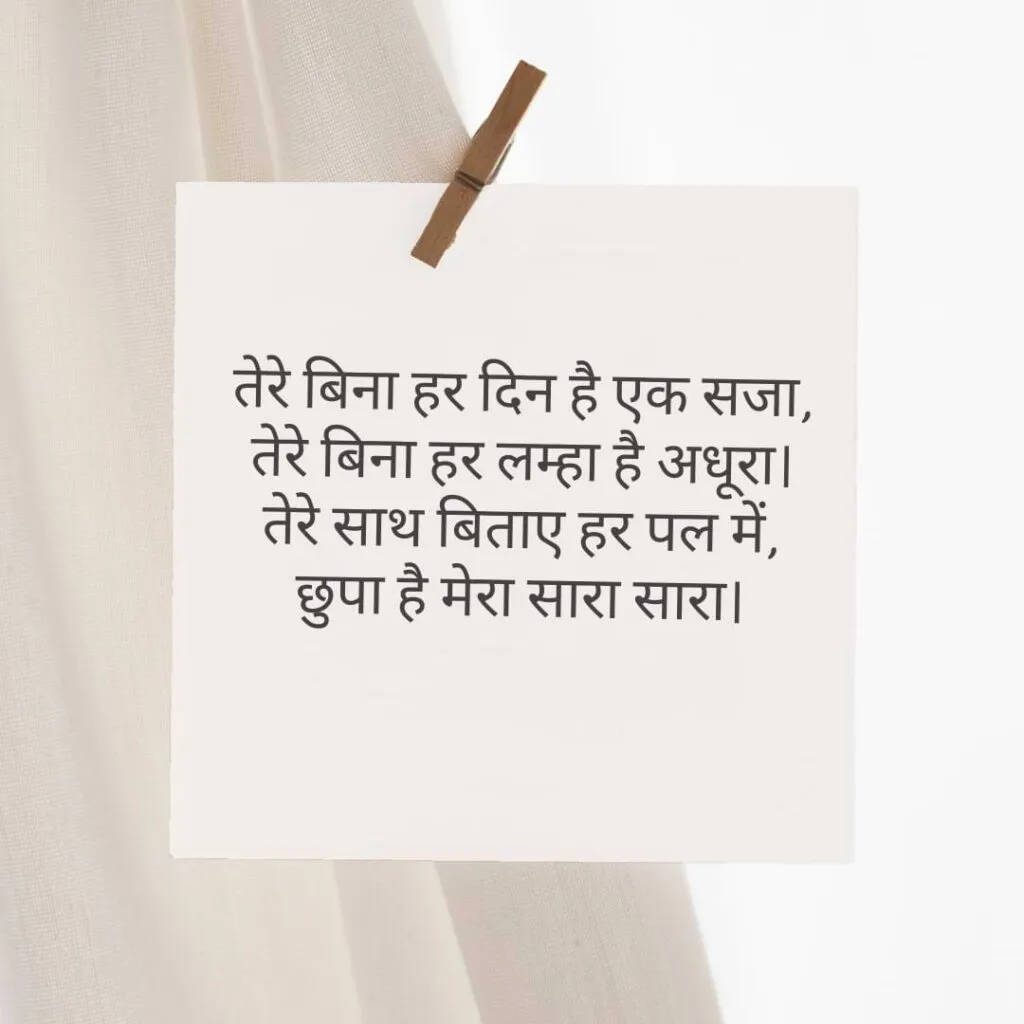 तेरे बिना हर दिन है एक सजा,
तेरे बिना हर लम्हा है अधूरा।
तेरे साथ बिताए हर पल में,
छुपा है मेरा सारा सारा।